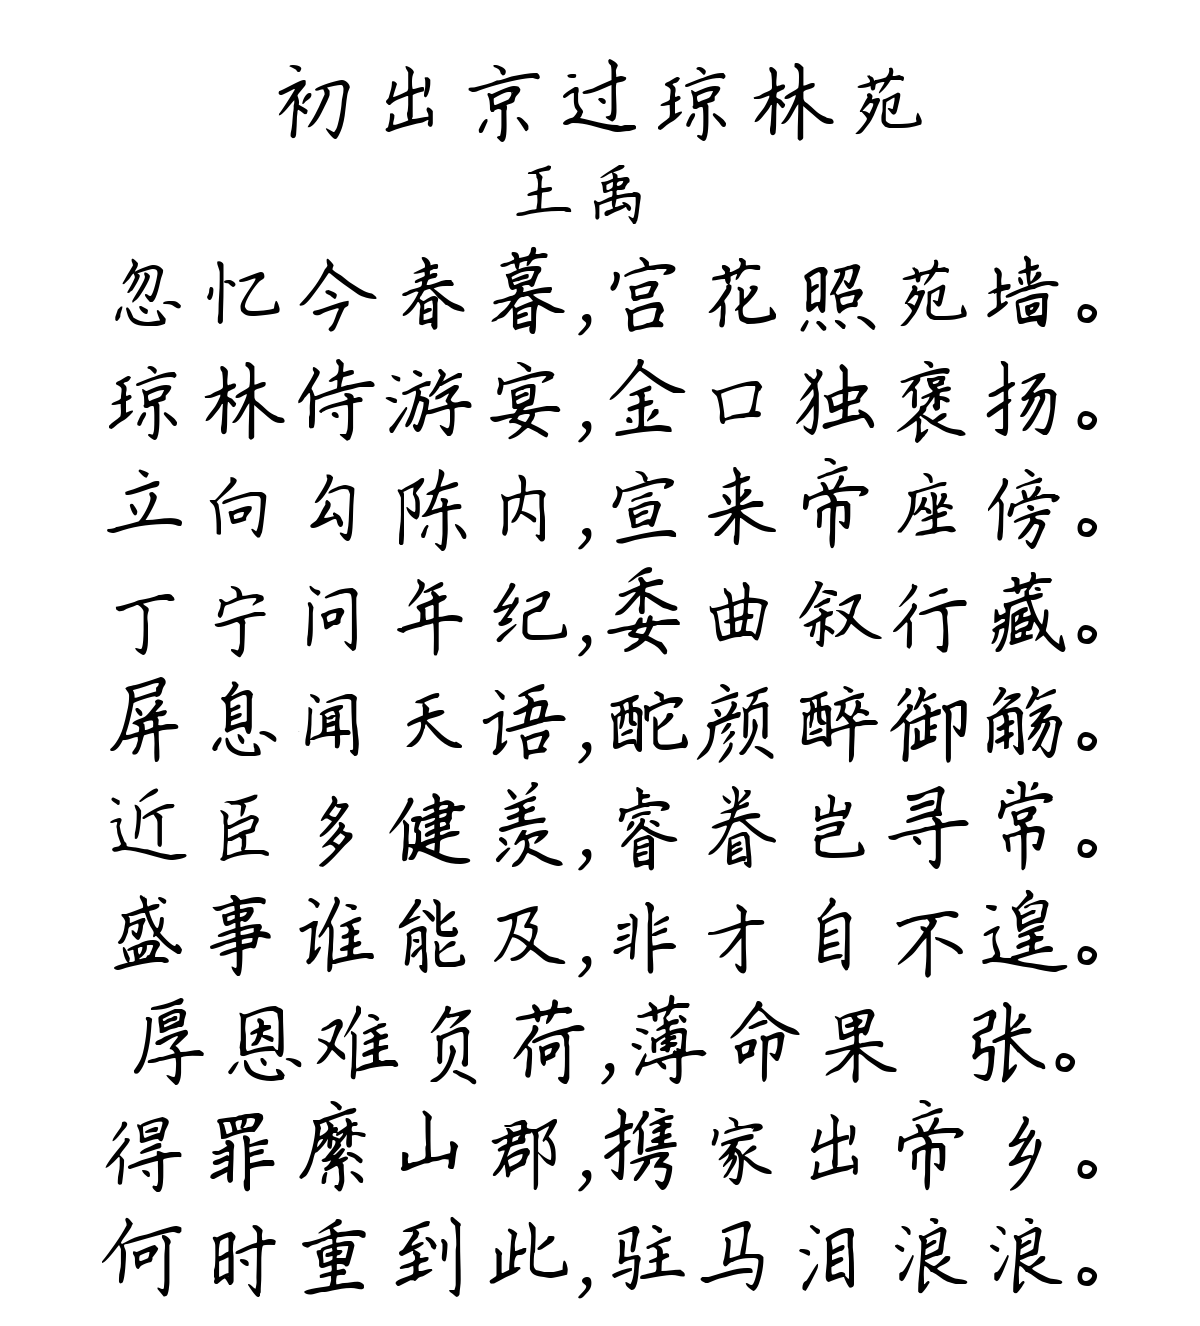 初出京过琼林苑
王禹
忽忆今春暮,宫花照苑墙。
琼林侍游宴,金口独褒扬。
立向勾陈内,宣来帝座傍。
丁宁问年纪,委曲叙行藏。
屏息闻天语,酡颜醉御觞。
近臣多健羡,睿眷岂寻常。
盛事谁能及,非才自不遑。
厚恩难负荷,薄命果 张。
得罪縻山郡,携家出帝乡。
何时重到此,驻马泪浪浪。